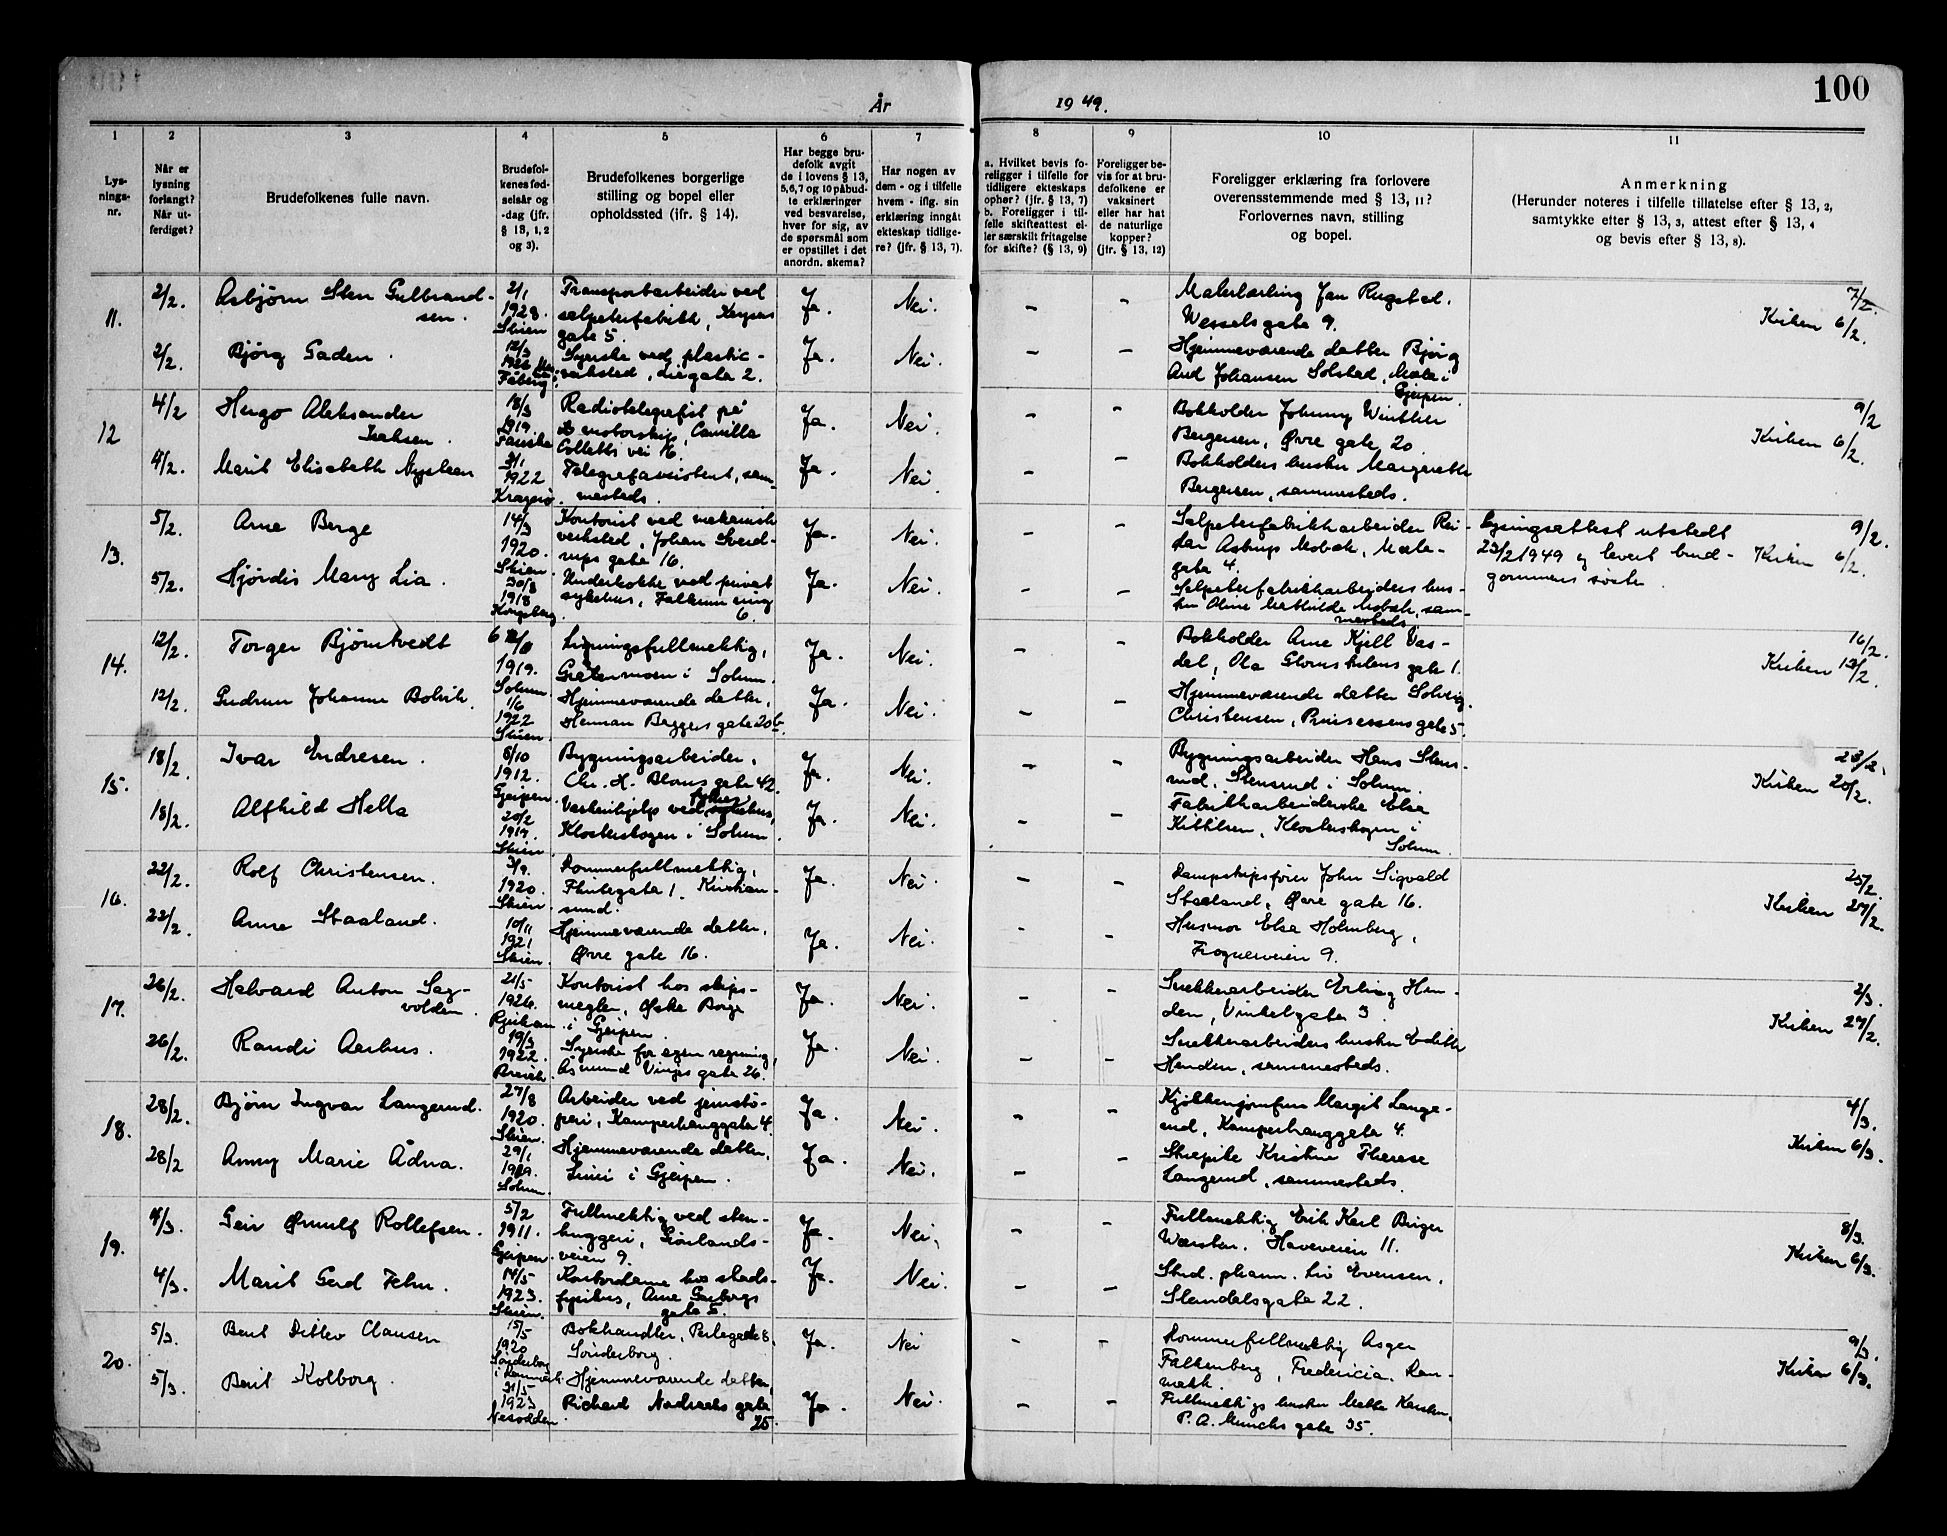 100
År 1949.
1 2 3 4 5 6 7 8 9 10 11
Lysnings-
nr.
Når er
lysning
forlangt?
Når ut-
ferdiget?
Brudefolkenes fulle navn.
Brudefol-
kenes fød-
selsår og
-dag (jfr.
§ 13, 1, 2
og 3).
Brudefolkenes borgerlige
stilling og bopel eller
opholdssted (jfr. § 14).
Har begge bru-
defolk avgit
de i lovens § 13,
5,6,7 og 10 påbud-
te erklæringer
ved besvarelse,
hver for sig, av
de spørsmål som
er opstillet i det
anordn. skema?
Har nogen av
dem - og i tilfelle
hvem - iflg. sin
erklæring inngått
ekteskap tidlige-
re? (jfr. § 13, 7).
a. Hvilket bevis fo-
religger i tilfelle for
tidligere ekteskaps
ophør? (jfr. § 13, 7)
b. Foreligger i til-
felle skifteattest el-
ler særskilt fritagelse
for skifte? (§ 13, 9)
Foreligger be-
vis for at bru-
defolkene er
vaksinert
eller har hat
de naturlige
kopper?
(jfr. § 13, 12)
Foreligger erklæring fra forlovere
overensstemmende med § 13, 11?
Forlovernes navn, stilling
og bopel.
Anmerkning
(Herunder noteres i tilfelle tillatelse efter § 13, 2,
samtykke efter § 13, 3, attest efter § 13, 4
og bevis efter § 13, 8).
11.
2/2. Asbjørn Sten Gulbrand-
sen.
2/1
1923.
Skien
Transportarbeider ved
salpeterfabrikk, Keysers
gate 5.
Ja. Nei. - -
Malerlærling Jan Rugstad.
Wesselsgate 9.
7/2.
Kirken 6/2.
2/2. Bjørg Gaden.
12/3
1926
Fåberg
Syerske ved plastic-
verksted, Liegata 2.
Ja. Nei. - -
Hjemmeværende datter Bjørg
Aud Johansen Solstad, Mæla i
Gjerpen.
12
4/2 Hugo Aleksander
Isaksen.
18/3
1919.
Fauske
Radiotelegrafist på
motorskip, Camilla
Colletts vei 16.
Ja. Nei. - -
Bokholder Johnny Winther
Bergersen, Øvre gate 20.
9/2
Kirken 6/2.
4/2. Marit Elisabeth Nysteen
1922
Kragerø.
Telegrafassistent, sam-
mesteds.
Ja. Nei. - -
Bokholders hustru Margarethe
Bergersen, sammesteds.
13.
5/2. Arne Berge
14/3
1920.
Skien.
Kontorist ved mekanisk
verksted, Johan Sverd-
rups gate 16.
Ja. Nei. - -
Salpeterfabrikkarbeider Rei-
dar Astrup Mobæk, Mæla-
gate 4.
Lysingsattest utstedt
23/2 1949 og levert brud-
gommens søster.
9/2.
Kirken 6/2.
5/2. Hjørdis Mary Lia.
30/8
1918
Kongsberg
Underkokke ved privat
sykehus, Falkum ring
6.
Ja. Nei. - -
Salpeterfabrikkarbeiders hus-
tru Oline Mathilde Mobæk, sam-
mesteds.
14.
12/2. Torger Bjørntvedt
1919.
Solum
Ligningsfullmektig,
Gråtenmoen i Solum.
Ja. Nei. - -
Bokholder Arne Kjell Vas-
dal, Ola Glomstulens gate 1.
16/2.
Kirken 13/2.
12/2. Gudrun Johanne Bolvik.
1/6
1922
Skien.
Hjemmeværende datter,
Herman Baggers gate 20b.
Ja. Nei. - -
Hjemmeværende datter Solveig
Christensen, Prinsessens gate 5.
15.
18/2. Ivar Endresen.
8/10
1912.
Gjerpen.
Bygningsarbeider,
Chr. H. Bloms gate 42.
Ja. Nei. - -
Bygningsarbeider Hans Stens-
rud, Stensrud i Solum.
23/2.
Kirken 20/2.
18/2. Alfhild Hella
20/2
1917.
Skien.
Vaskerihjelp ved fylkes-
sykehus,
Klosterskogen i Solum
Ja. Nei. - -
Fabrikkarbeiderske Elsa
Kittilsen, Klosterskogen i
Solum.
16.
22/2. Rolf Christensen.
3/9.
1920.
Skien.
Dommerfullmektig,
Flintegata 1. Kristian-
sund.
Ja. Nei. - -
Dampskipsfører John Sigvald
Staaland, Øvre gate 16.
25/2.
Kirken 27/2.
22/2. Anne Staaland.
10/11
1921
Skien.
Hjemmeværende datter,
Øvre gate 16.
Ja. Nei. - -
Husmor Elsa Holmberg,
Frognerveien 9.
17.
26/2. Halvard Anton Sag-
volden
21/5
1926.
Rjukan
Kontorist hos skips-
megler, Østre Borge
i Gjerpen.
Ja. Nei. - -
Snekkerarbeider Erling Hen-
den, Vinkelgata 3.
2/3.
Kirken 27/2.
26/2. Randi Aarhus.
19/3
1922.
Brevik
Syerske for egen regning,
Åsmund Vinjes gate 26.
Ja. Nei. - -
Snekkerarbeiders hustru Edith
Henden, sammesteds.
18.
28/2. Bjørn Ingvar Langerud.
27/8
1920.
Skien.
Arbeider ved jernstø-
peri, Kamperhauggata 4.
Ja. Nei. - -
Kjøkkenjomfru Margit Lange-
rud, Kamperhauggata 4.
4/3.
Kirken 6/3.
28/2 Anny Marie Ådna.
29/1
1929.
Solum.
Hjemmeværende datter,
Limi i Gjerpen.
Ja. Nei. - -
Skrepite Kristine Therese
Langerud, sammesteds.
19.
4/3. Geir Ørnulf Rollefsen.
5/2
1911.
Gjerpen.
Fullmektig ved sten-
huggeri, Sørlands-
veien 9.
Ja. Nei. - -
Fullmektig Erik Karl Birger
Wærstan. Haveveien 11.
8/3.
Kirken 6/3.
4/3. Marit Gerd Jehn.
14/5
1923.
Skien.
Kontordame hos stads-
fysikus, Arne Garborgs
gate 5.
Ja. Nei. - -
Stud. pharm. Liv Evensen,
Slemdalsgate 22.
20.
5/3. Bent Ditlev Clausen
15/5
1920
Sønderborg
i Danmark.
Bokhandler, Perlegade 8.
Sønderborg.
Ja. Nei - -
Dommerfullmektig Asger
Falkenberg, Fredericia. Dan-
mark.
9/3.
Kirken 6/3.
5/3. Berit Kolborg.
31/5
1923
Nesodden.
Hjemmeværende datter,
Richard Nodreaks gate
25.
Ja. Nei. - -
Fullmektigs hustru Mette Karsten,
P. A. Munchs gate 35.